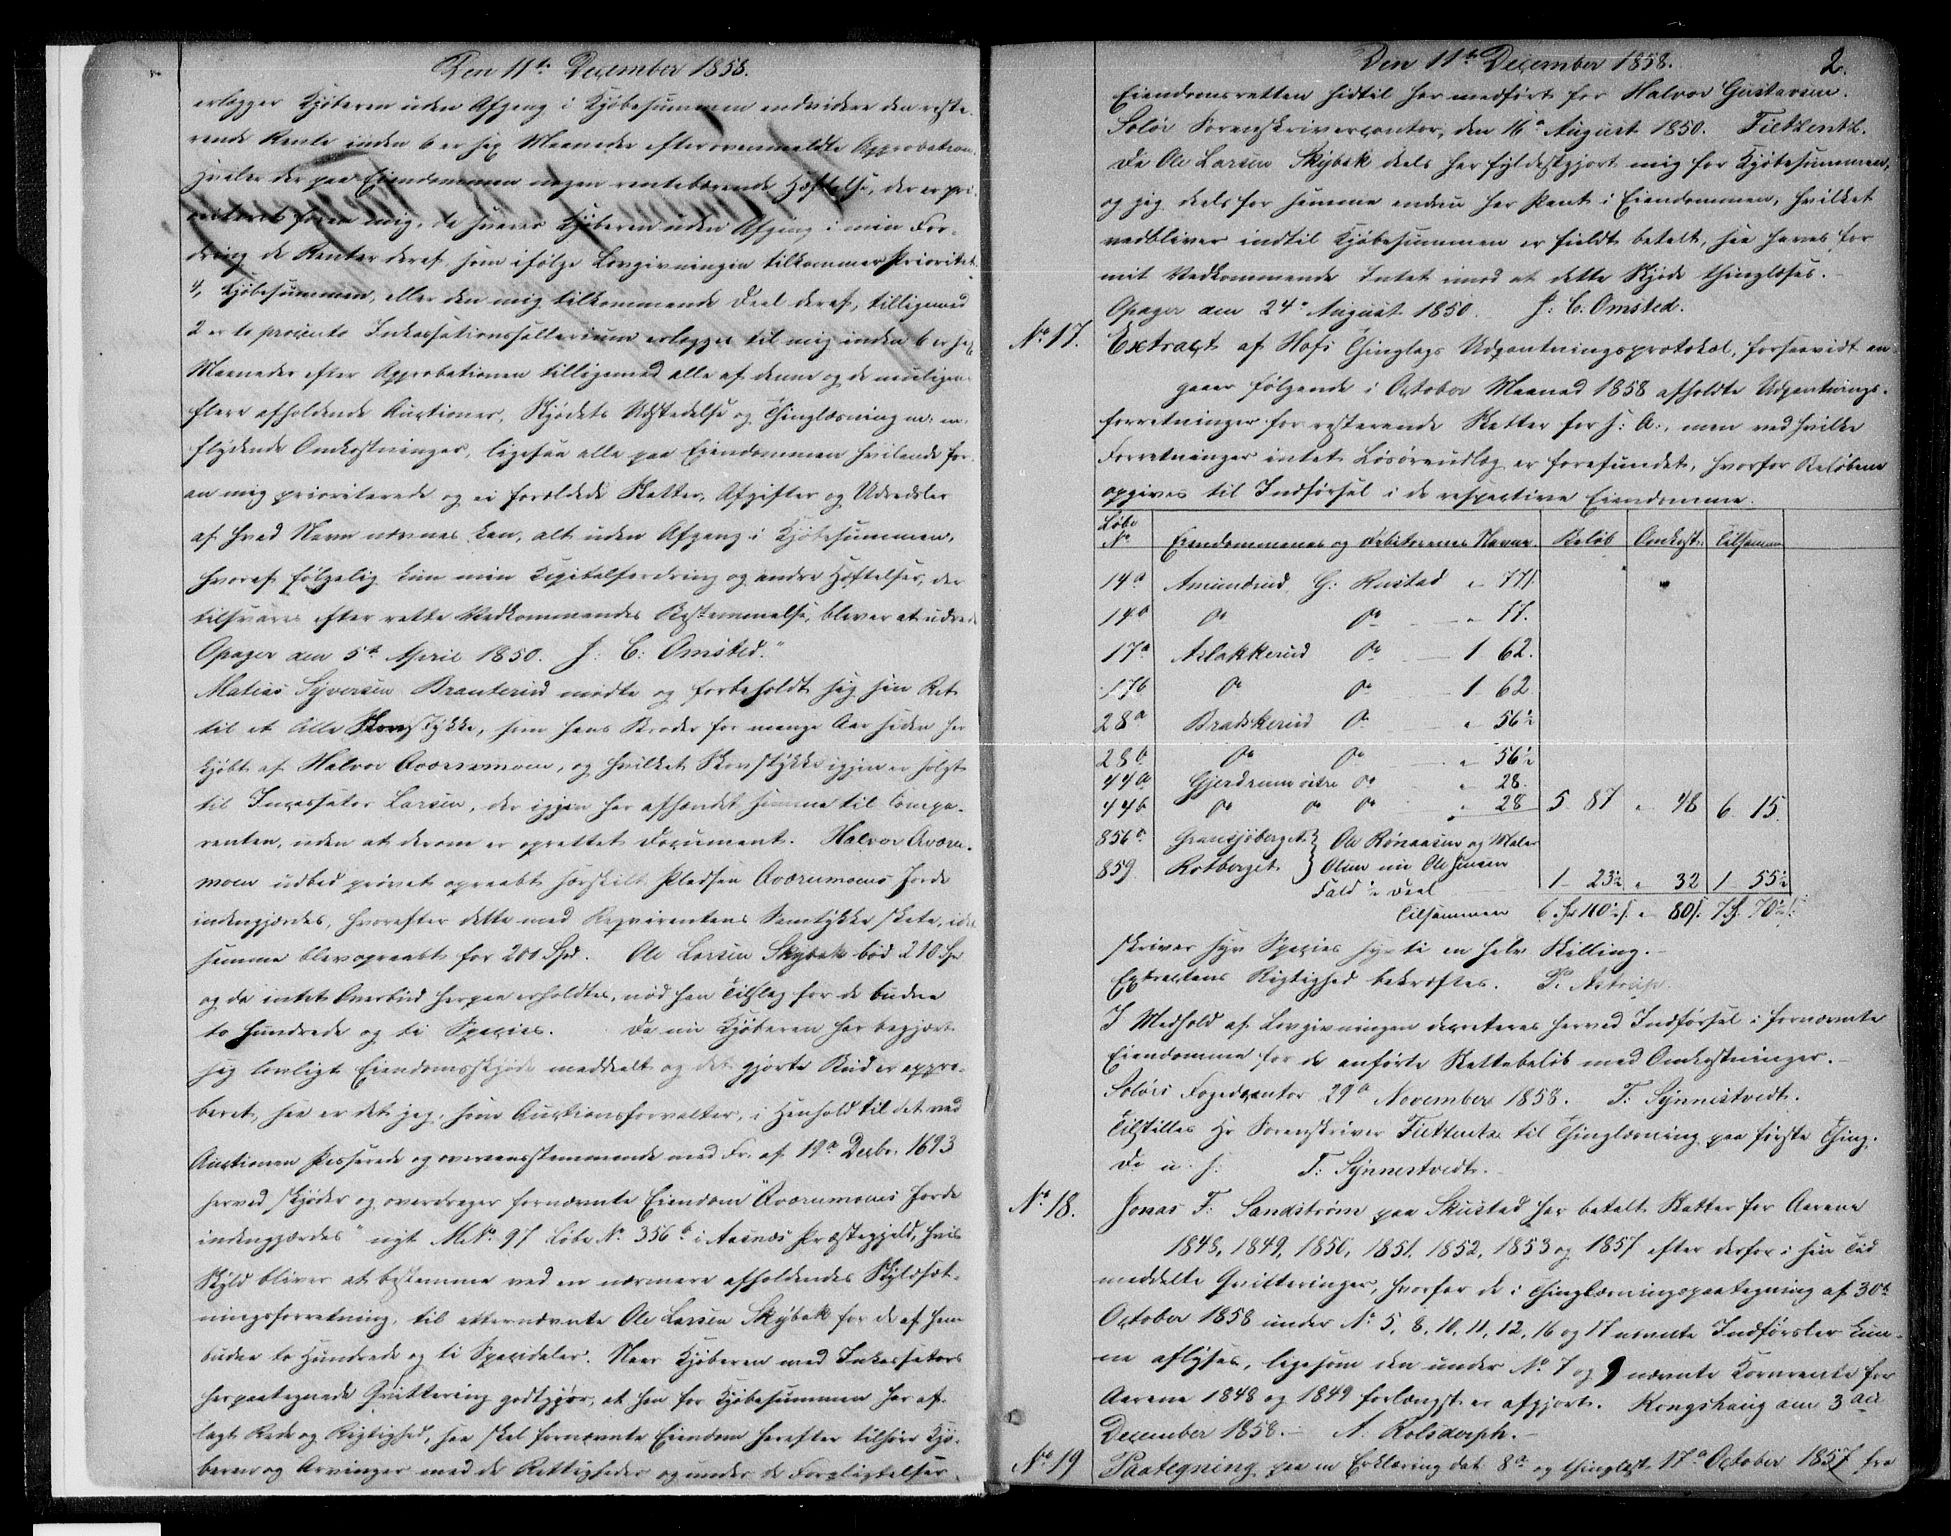 Den 11te December 1858.
erlægger Kjøberen uden Afgang i Kjøbesummen endvidere den reste-
rende Rente inden 6 er sex Maaneder efter ovenmeldte Approbation.
Hviler der paa Eiendommen nogen rentebærende Hæftelse, der er pri-
oriteret foran mig, da svarer Kjøberen uden Afgang i min For-
dring de Renter deraf, som ifølge Lovgivningen tilkommer Prioritet.
4, Kjøbesummen, eller den mig tilkommende Deel deraf, tilligemed
2 er to procento Inkassationssallarium erlægges til mig inden 6 er sex
Maaneder efter Approbationen tilligemed alle af denne og de muligen
flere afholdende Auctioner, Skjødets Udstedelse og Thinglæsning m. m.
flydende Omkostninger, ligesaa alle paa Eiendommen hvilende for-
an mig prioriterede og ei forældede Skatter, Afgifter og Udredsler
af hvad Navn nævnes kan, alt uden Afgang i Kjøbesummen,
hvoraf følgelig kun min Capitalfordring og andre Hæftelser, der
tilsvares efter rette Vedkommendes Bestemmelse, bliver at udrede
Opager den 5te April 1850. J: C: Omsted."
Matias Syversen Branterud mødte og forbeholdt sig sin Ret
til et lille Skovstykke, som hans Broder for mange Aar siden har
kjøbt af Halvor Aværnmoen, og hvilket Skovstykke igjen er solgt
til Incassator Larsen, der igjen har afhændet samme til Compa-
renten, uden at derom er oprettet Document. Halvor Aværn-
moen udbad prøvet opraabt særskilt Pladsen Aværnmoens Jorde
indengjærdes, hvorefter dette med Reqvirentens Samtykke skete, idet
samme blev opraabt for 201 Spd. Ole Larsen Skybak bød 210 Spd
og da intet Overbud herpaa erholdtes, nød han Tilslag for de budne
to hundrede og ti Species. Da nu Kjøberen har begjært
sig lovligt Eiendomsskjøde meddeelt og det gjorte Bud er appro-
beret, saa er det jeg, som Auctionsforvalter, i Henhold til det ved
Auctionen Passerede og overeensstemmende med Fr. af 19de Decbr. 1693
herved skjøder og overdrager fornævnte Eiendom "Aværnmoens Jorde
indengjærdes" nyt M.No. 97 Løbe No. 356b i Aasnæs Præstegjeld, hvis
Skyld bliver at bestemme ved en nærmere afholdendes Skyldsæt-
ningsforretning, til etternævnte Ole Larsen Skybak for de af ham
budne to Hundrede og ti Speciedaler. Naar Kjøberen med Inkassators
herpaategnede Qvittering godtgjør, at han for Kjøbesummen har af-
lagt Rede og Rigtighed, saa skal fornævnte Eiendom herefter tilhøre Kjø-
beren og Arvinger med de Rettigheder og under de Forpligtelser,
Den 11te December 1858.
2.
Eiendomsretten hidtil har medført for Halvor Gustavsen.
Solør Sorenskrivercontor, den 16de August 1850. Fietzentz.
Da Ole Larsen Skybak deels har fyldestgjort mig for Kjøbesummen,
og jeg deels for samme endnu har Pant i Eiendommen, hvilket
vedbliver indtil Kjøbesummen er fuldt betalt, saa haves for
mit Vedkommende Intet imod at dette Skjøde thinglæses.
Opager den 24de August 1850. J: C. Omsted.
No. 17.
Extract af Hofs Thinglags Udpantningsprotokol, forsaavidt an-
gaaer følgende i October Maaned 1858 afholdte Udpantnings-
forretninger for resterende Skatter for s: A:, men ved hvilke
Forretninger intet Løsøreudlæg er forefundet, hvorfor Beløbene
opgives til Indførsel i de respective Eiendomme.
Løbe No Eiendommenes og Debitorernes Navne. Beløb Omkost: Tilsammen
14a Amundrud G: Rustad " 77.
14b Do Do " 77.
17a Aslakkerud Do 1 62.
17b Do Do 1 62.
28a Bradskerud Do " 56½
28b Do Do " 56½
44a Gjerdrum øvre Do " 28.
44b Do Do Do " 28 5 87 " 48 6 15.
856a Gransjøberget } Ole Rønaasen og
859 Rotberget } Olsen nu Ole Jensen
Fald ½ Deel 1 23½ " 32 1 55½
Tilsammen 6 Spd 110½ s. " 80 s. 7 Spd 70½ s.
skriver syv Species syvti en halv Skilling.
Extractens Rigtighed bekræftes. P. Astrup.
I Medhold af Lovgivningen decreteres herved Indførsel i fornævnte
Eiendomme for de anførte Skattebeløb med Omkostninger.
Solørs Fogedcontor 29de November 1858. T: Synnestvedt.
Tilstilles Hr Sorenskriver Fiettentz til Thinglæsning paa første Thing.
D. u. s. T: Synnestvedt.
No. 18.
Jonas T: Sandstrøm paa Skustad har betalt Skatter for Aarene
1848, 1849, 1850, 1851, 1852, 1853 og 1857 efter derfor i sin Tid
meddelte Qvitteringer, hvorfor de i Thinglæsningspaategning af 30te
October 1858 under No. 5, 8, 10, 11, 12, 16 og 17 nævnte Indførsler kun-
ne aflyses, ligesom den under No. 7 og 9 nævnte Kornrente for
Aarene 1848 og 1849 forlængst er afgjort. Kongshaug den 3die
December 1858. A. Rolsdorph.
No. 19
Paategning paa en Erklæring dat. 8de og thinglæst 17de October 1857 fra